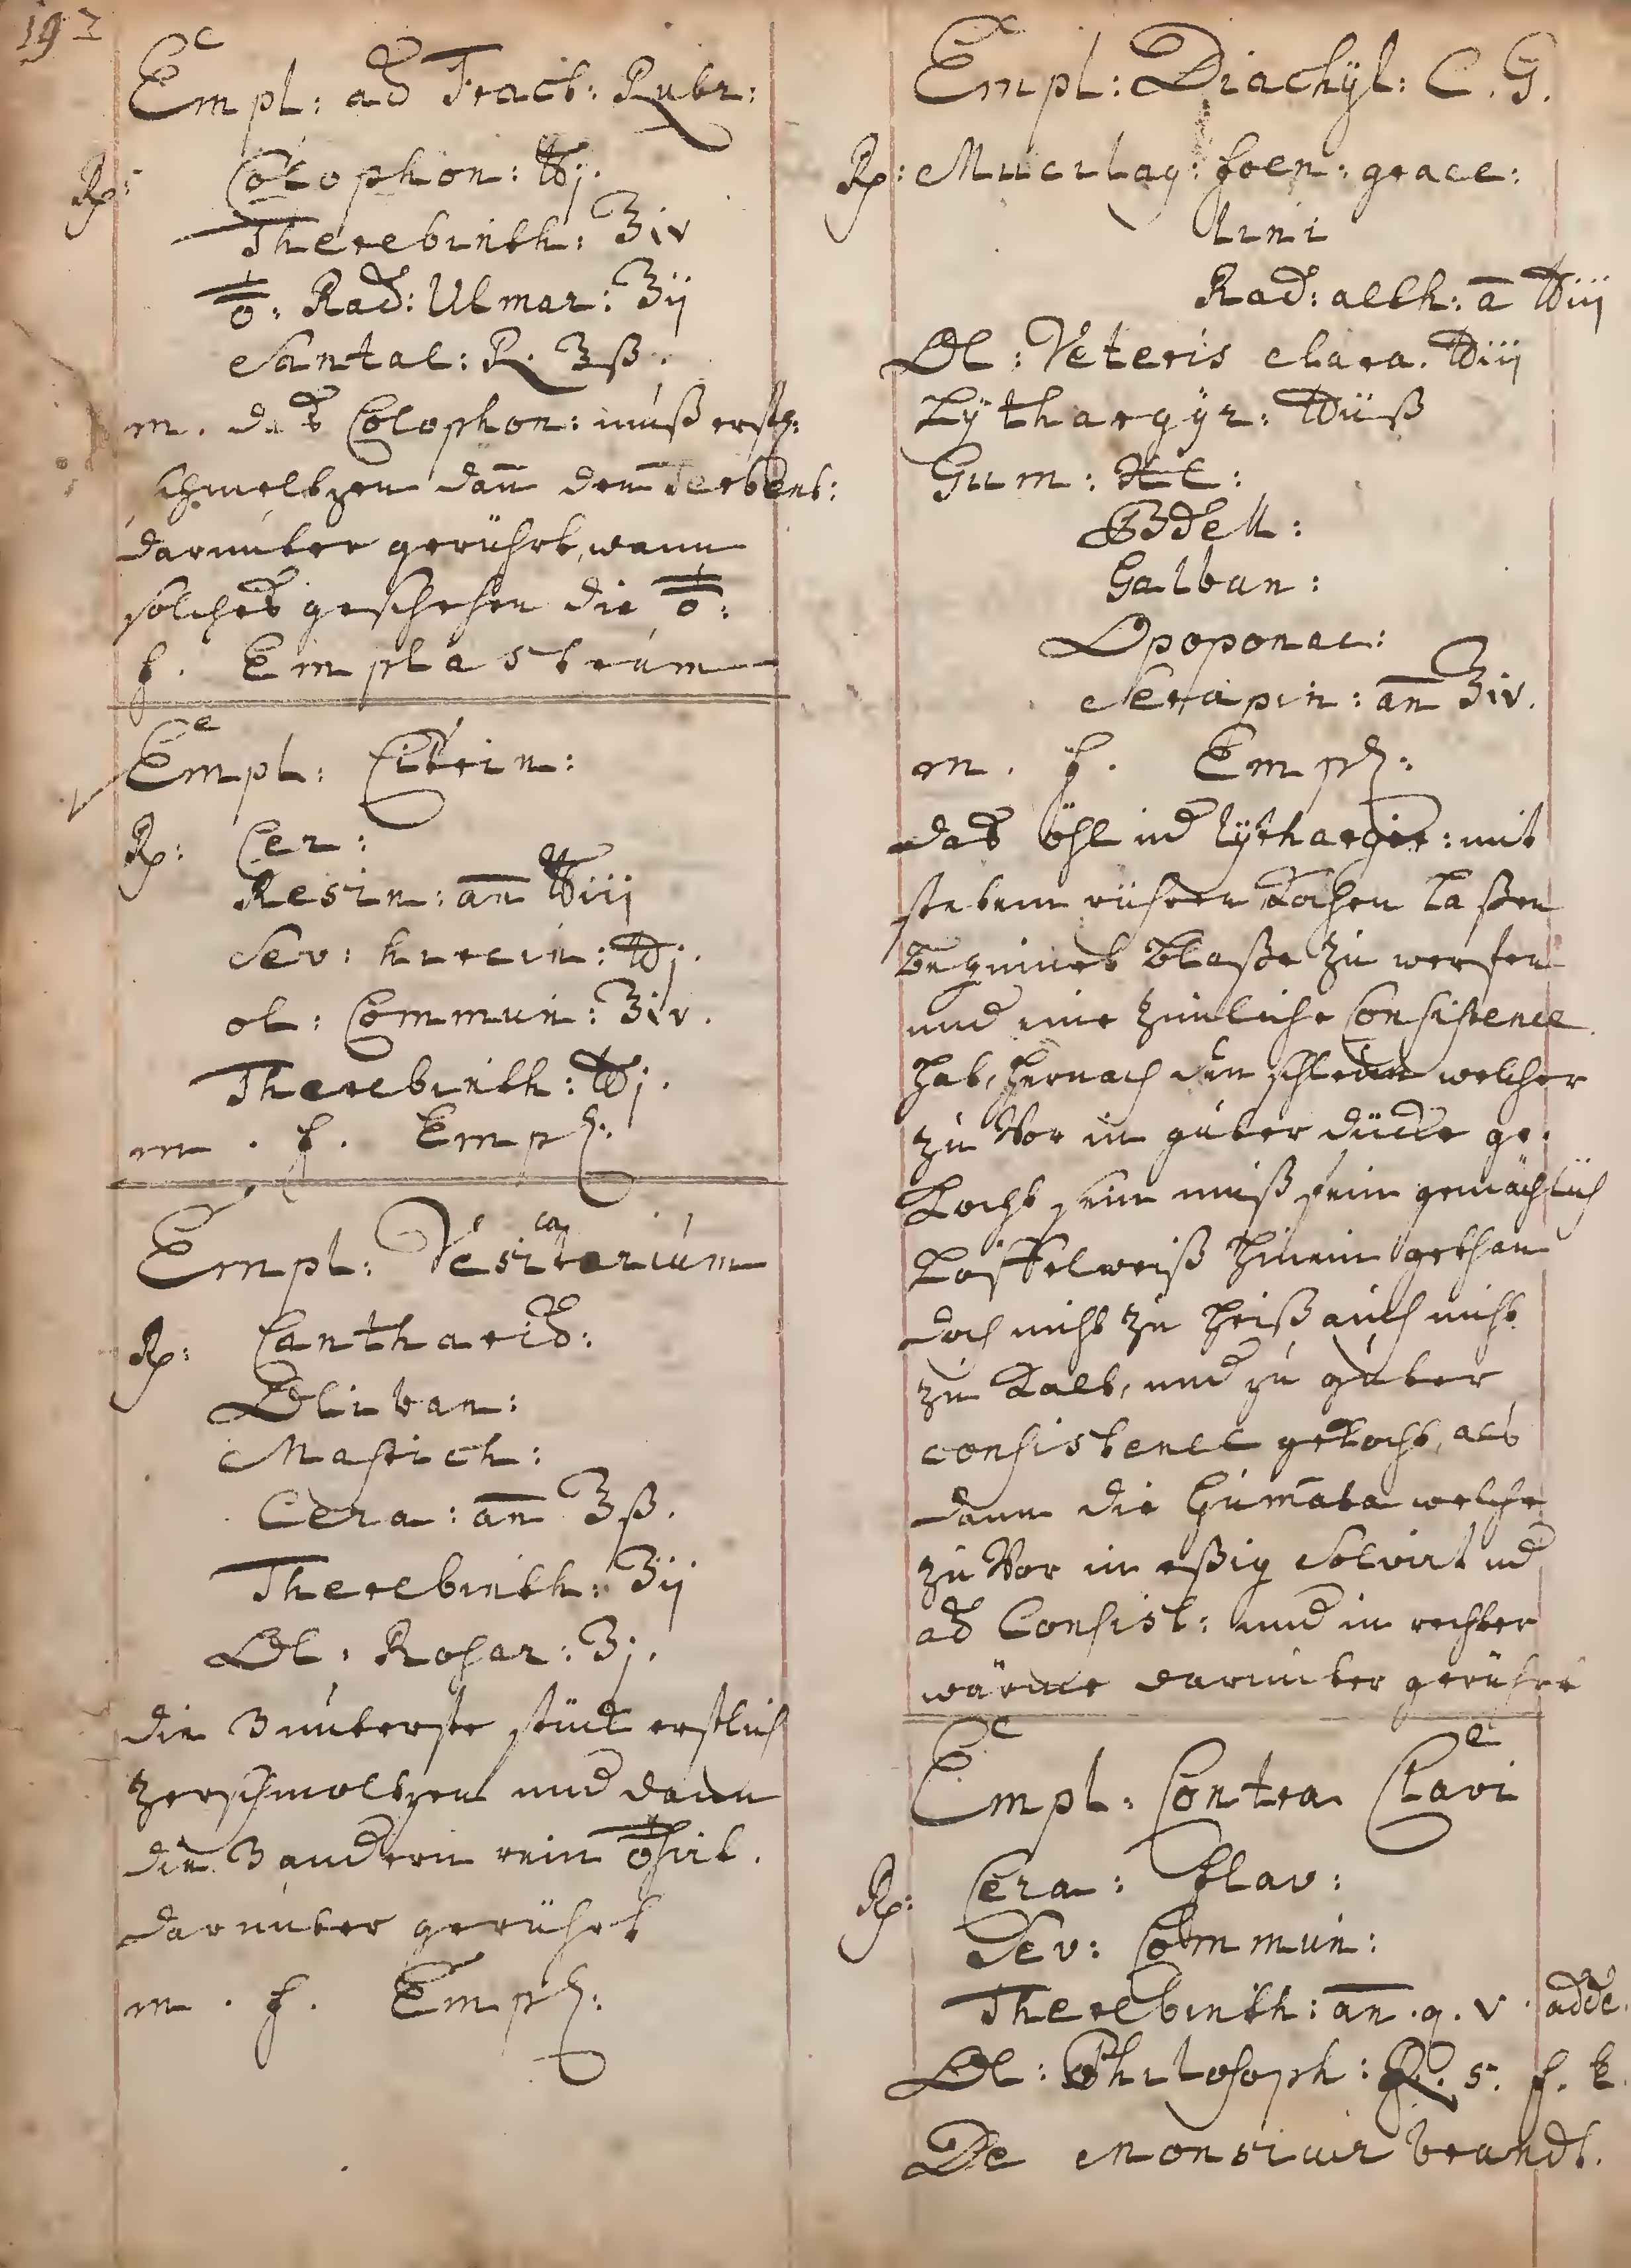 193
Empl: ad Fract: Rubr:
Rp: Colophon: ℔j.
Therebinth: ℥iv
Rad: Ulmar: ℥ij
Santal: R. ℥ß.
m. das Colophon: muß erstl:
schmeltzen dan̄ den Terbent:
darunter gerührt, wann
solches geschehen die
f. Emplastrum
Empl: Citrin:
Rp: Cer:
Resin: an̄ ℔iij
Sev: hircin: ℔j.
ol: Commun: ℥iv.
Therebinth: ℔j.
m. f. Empl:
Empl: Vesicatorium
Rp: Cantharid:
Oliban:
Mastich:
Cera: an̄ ℥ß.
Therebinth: ℥ij
Ol: Rosar: ℥j.
die 3 unterste stück erstlich
zerschmoltzen und dann
die 3 andern rein
darunter gerührt
m. f. Empl:
Empl: Diachÿl: C. G.
Rp: Mucilag: foen: graec:
lini
Rad: alth: a ℔iij
Ol: Veteris clara. ℔iij
Lÿthargÿr: ℔iiß
Gum:
Bdell:
Galban:
Opoponac:
Serapin: an̄ ℥iv.
m. f. Empl:
das öhl und lÿthargir: mit
stetem rühren Kochen laßen
beginnet Blaße zu werfen
und eine zimliche Consistence
hab, hernach den schleim welcher
zu Vor in guter dücke ge-
Kocht sein muß fein gemächlich
Löffelweiß hinein gethan
doch nicht zu heiß auch nicht
zu Kalt, und zu guter
consistence gekocht, als
dann die Gum̄ata welche
zu Vor in eßig Solvirt und
ad Consist: und in rechter
wärme darunter gerührt
Empl: Contra Clavi
Rp: Cera: flav:
Sev: Commun:
Therebinth: an̄. q. v. adde.
Ol: Philosoph: Q. s. f. E.
De Monsiuir brandt.